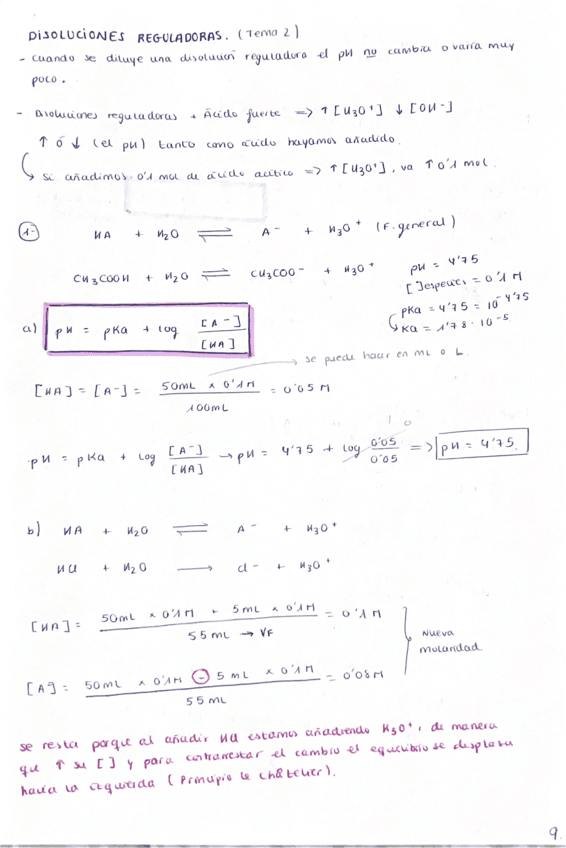 DISOLUCIONES REGULADORAS. (Tema 2)
- Cuando se diluye una disolución reguladora el pH no cambia o varía muy
poco.
- Disoluciones reguladoras + Ácido fuerte => ↑ [H3O+] ↓ [OH-]
↑ ó ↓ (el pH) tanto como ácido hayamos añadido.
Si añadimos 0'1 mol de ácido acético => ↑ [H3O+], va ↑ 0'1 mol.
1- HA + H2O ⇌ A- + H3O+ (F. general)
CH3COOH + H2O ⇌ CH3COO- + H3O+
pH = 4'75
[ ]especies = 0'1 M
pKa = 4'75 = 10^-4'75
Ka = 1'78 · 10^-5
a) pH = pKa + log [A-]/[HA]
se puede hacer en mL o L.
[HA] = [A-] = 50mL x 0'1M / 100mL = 0'05 M
pH = pKa + log [A-]/[HA] → pH = 4'75 + log 0'05/0'05 => pH = 4'75.
b) HA + H2O ⇌ A- + H3O+
HCl + H2O → Cl- + H3O+
[HA] = 50mL x 0'1M + 5mL x 0'1M / 55mL → VF = 0'1M
Nueva
molaridad
[A-] = 50mL x 0'1M - 5mL x 0'1M / 55mL = 0'08M
se resta porque al añadir HCl estamos añadiendo H3O+, de manera
que ↑ su [ ] y para contrarrestar el cambio el equilibrio se desplaza
hacia la izquierda (Principio le châtelier).
9.